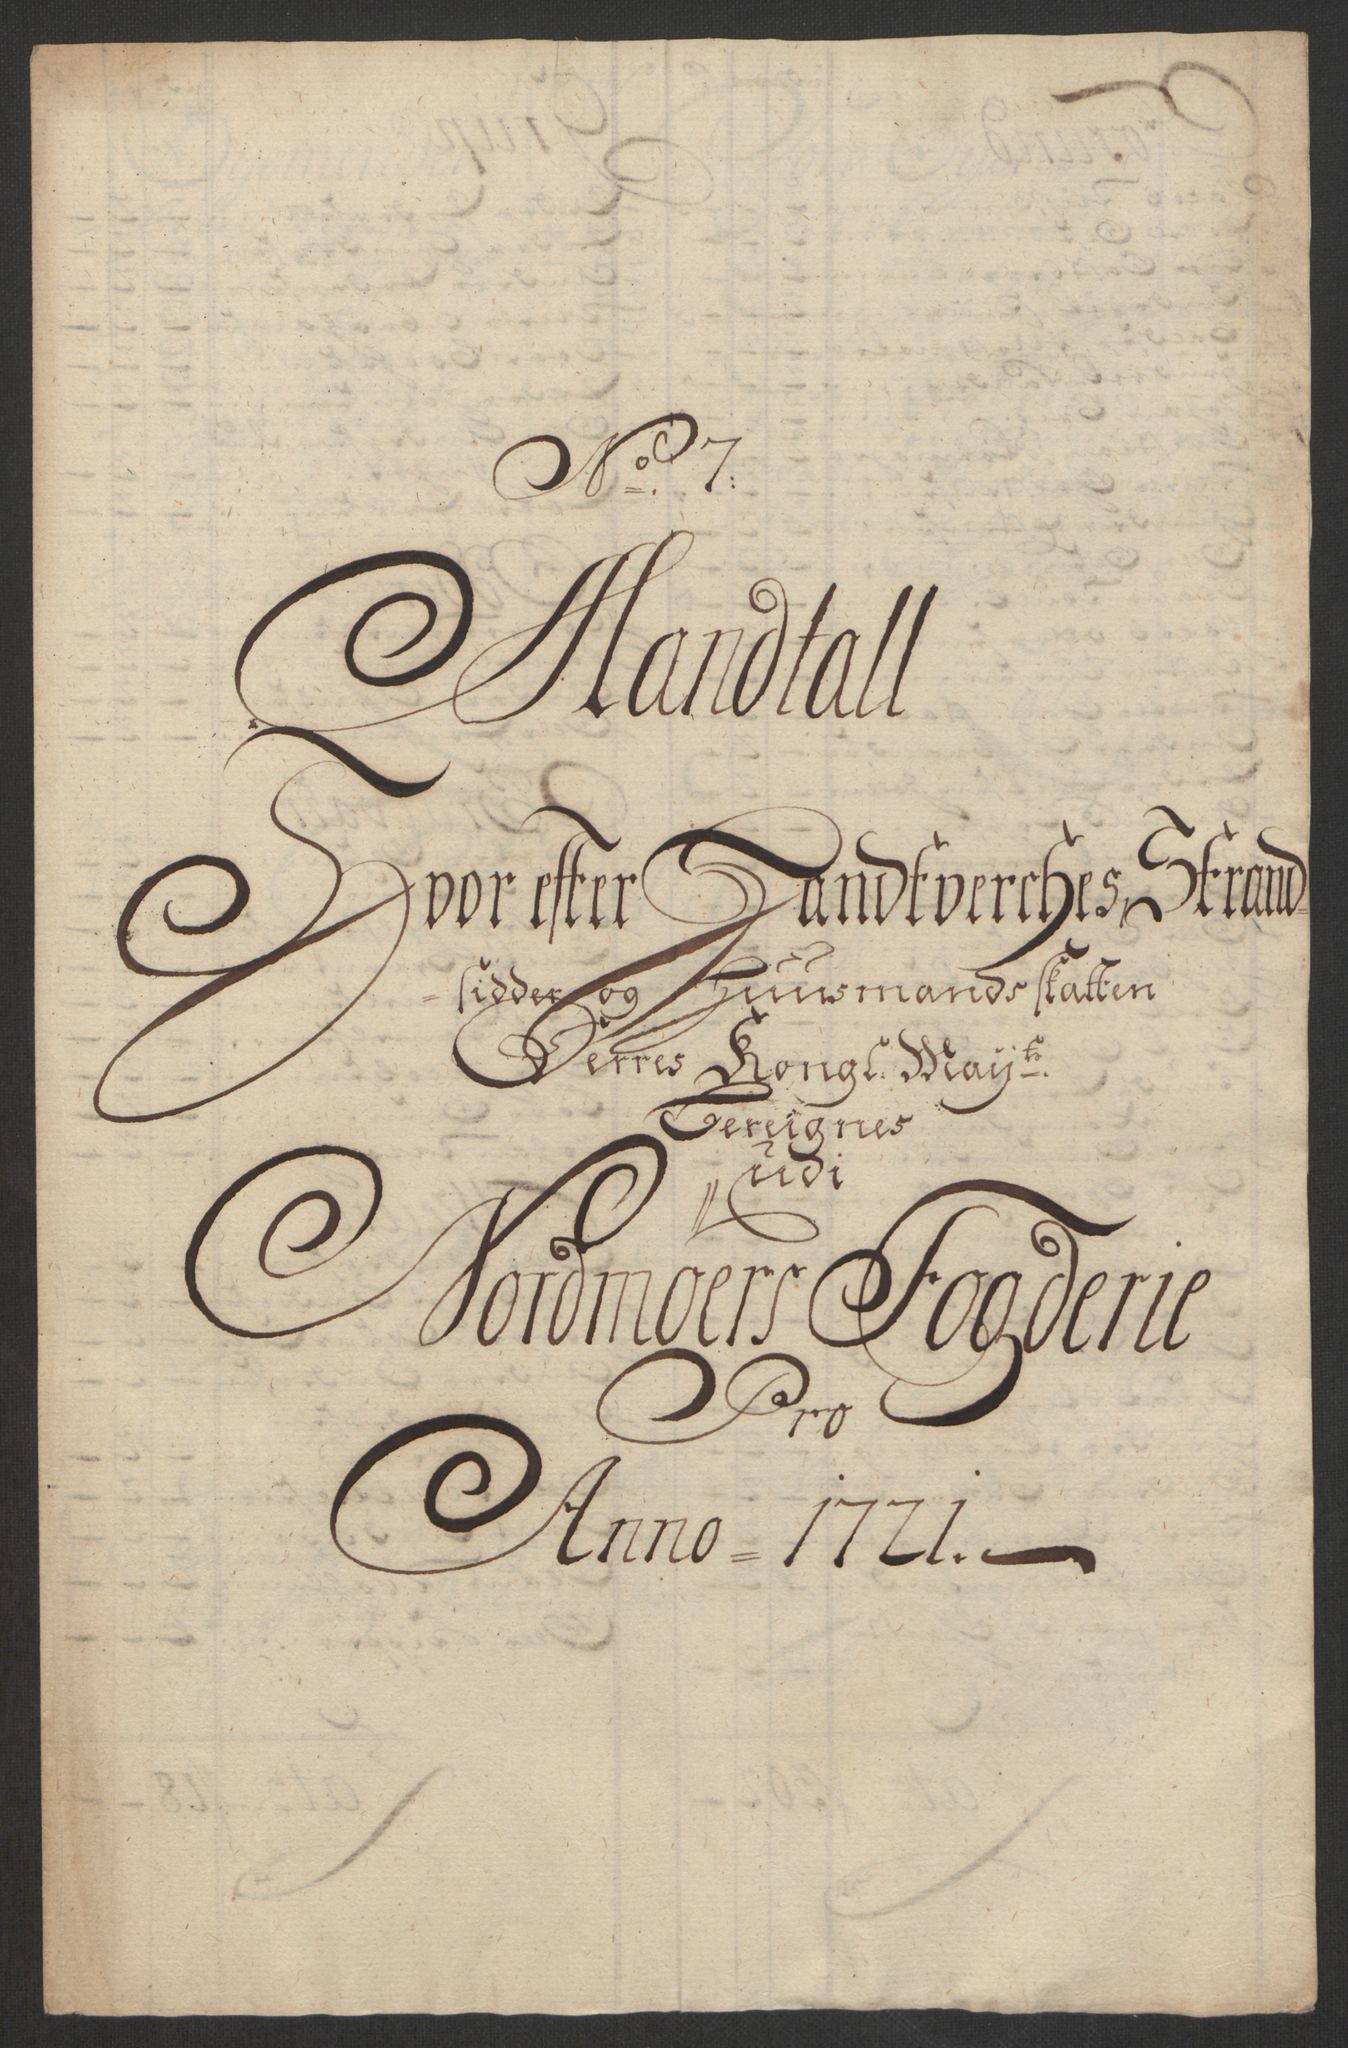 No. 7.
Mandtall
Hvor effter Handtverches, Strand-
-sidder og Huusmands skatten
Derres Kongl. Mayts.
Bereignes
udi
Nordmoers Fogderie
Pro
Anno = 1721.